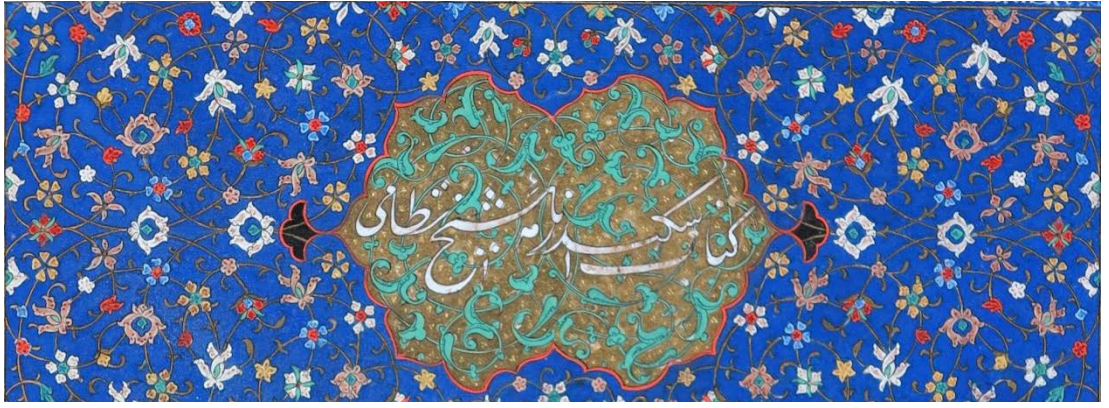 کتاب اسکندر نامهٔ شیخ نظامی